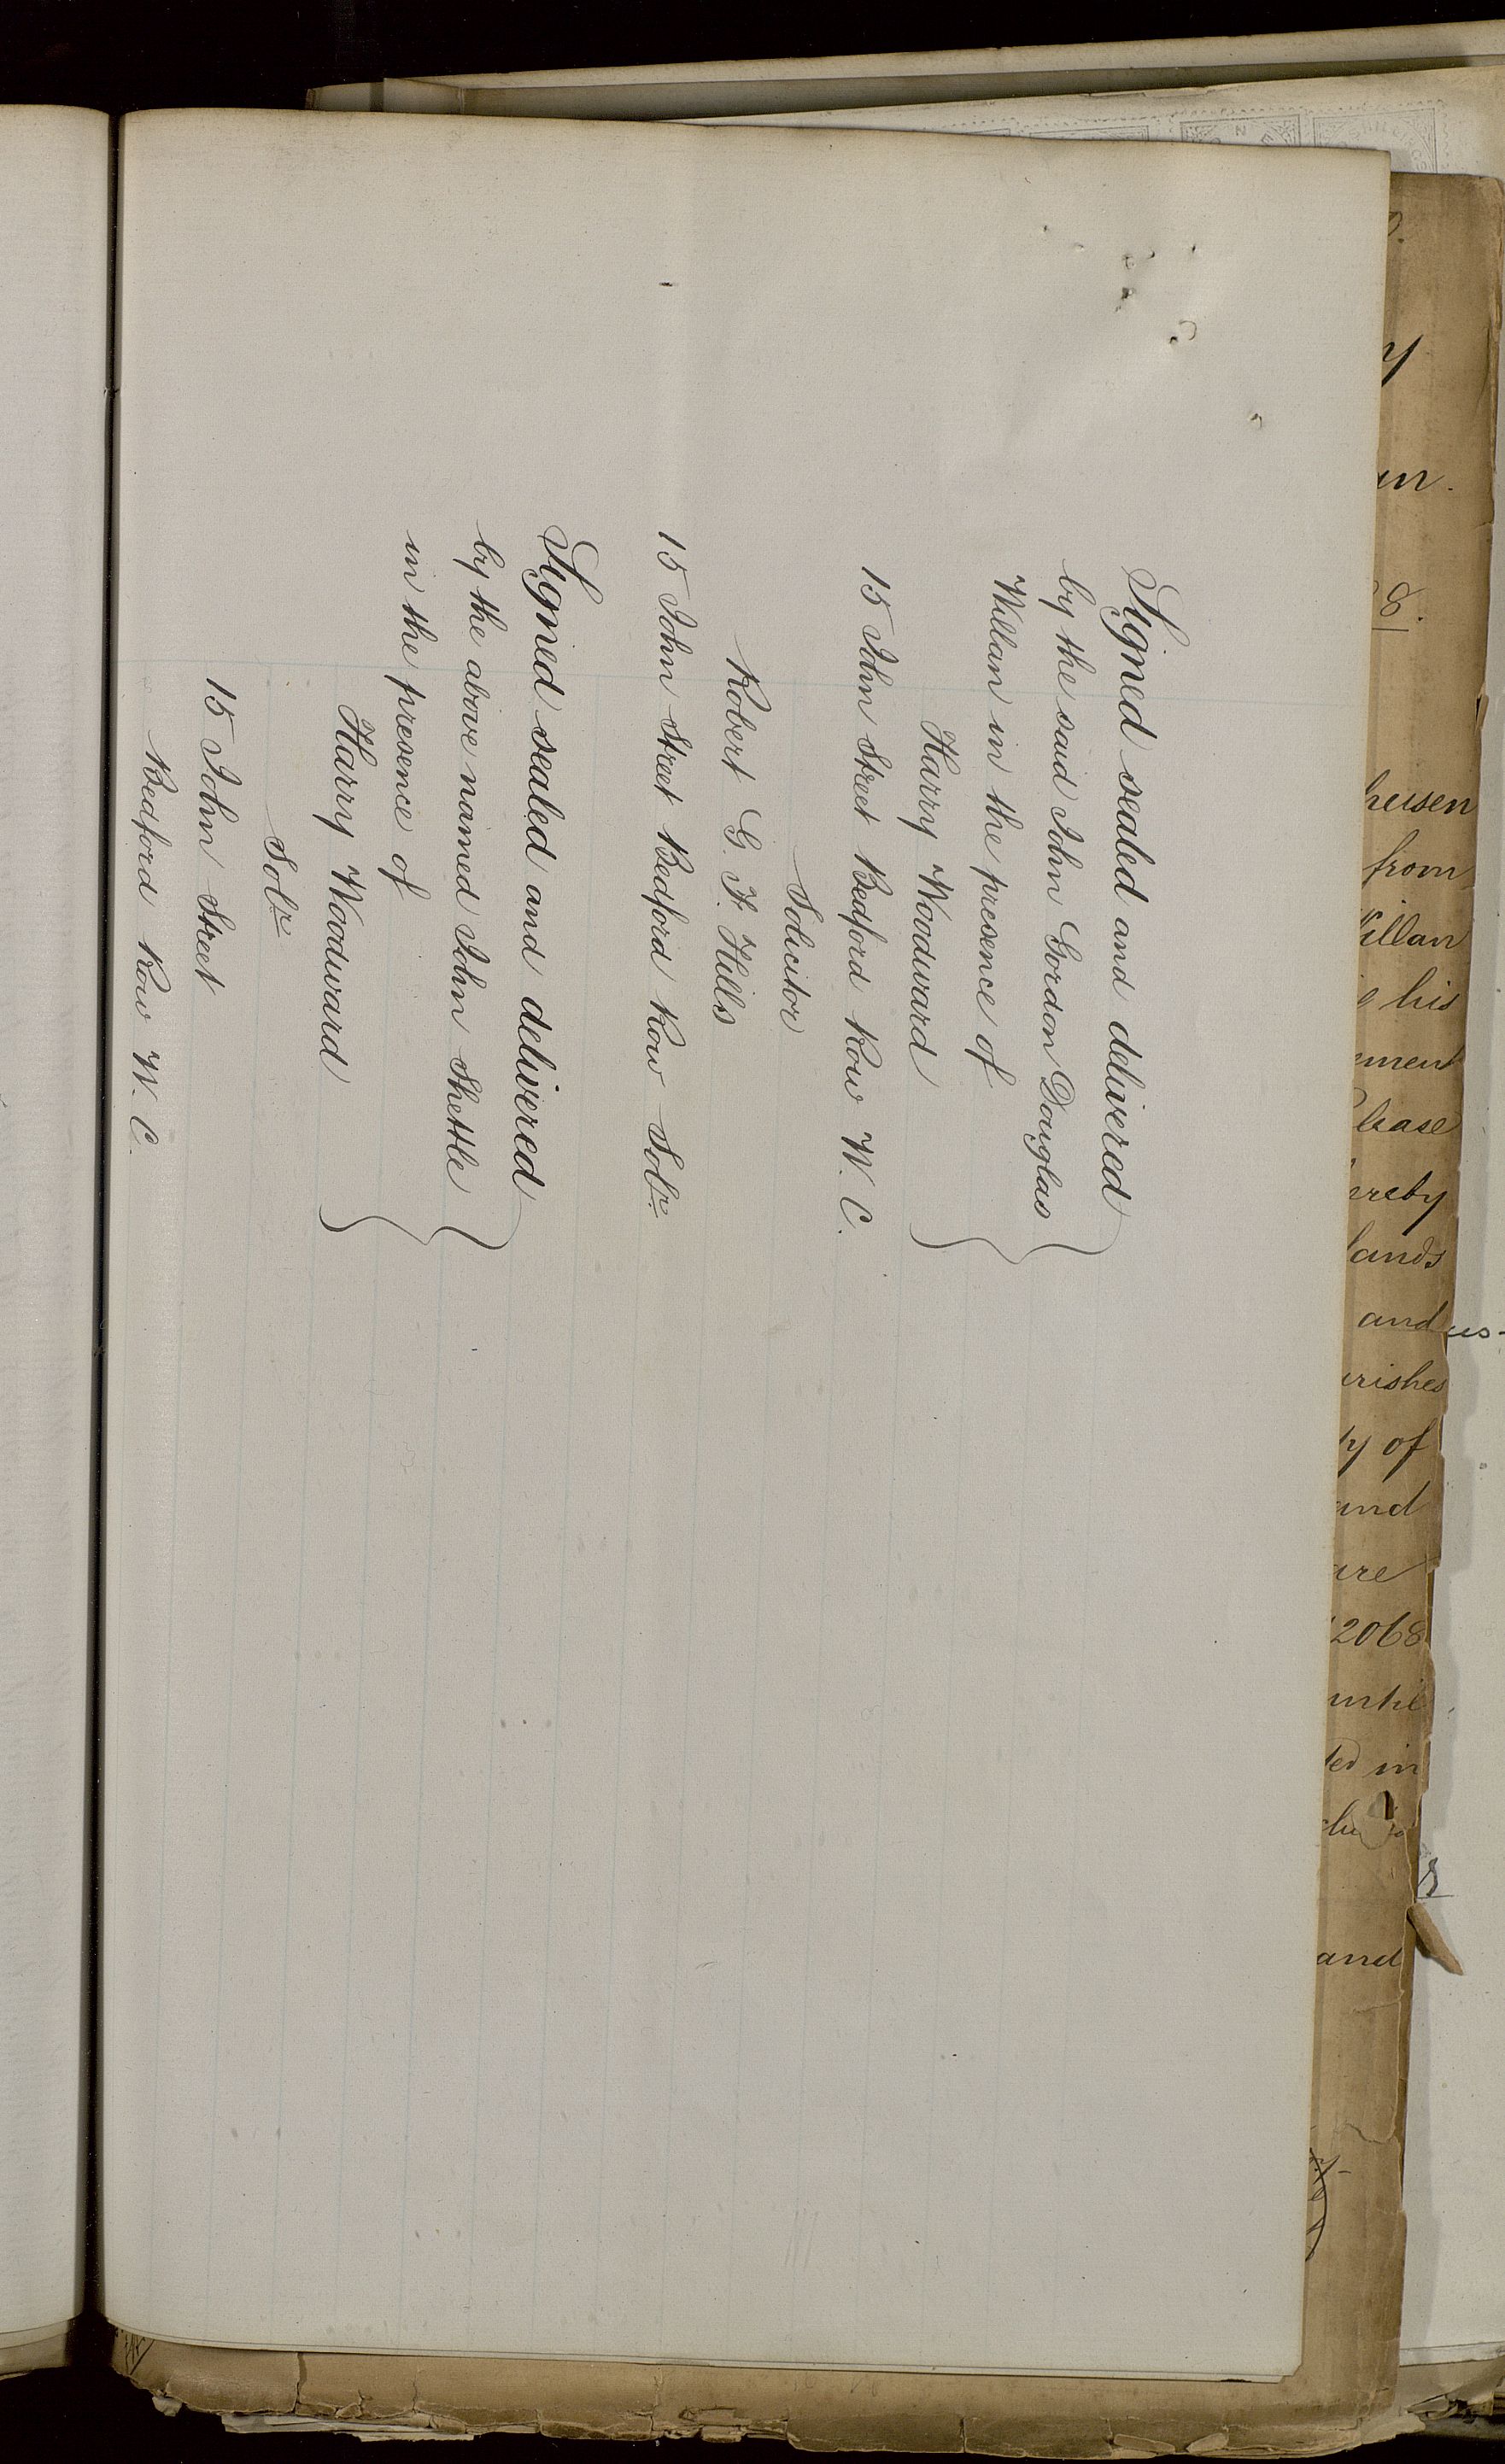 Signed sealed and delivered
by the said John Gordon Douglas
Willan in the presence of
Harry Woodward
15 John Street Bedford Row W. C.
Solicitor
Robert G. F. Hills
15 John Street Bedford Row Solr.
Signed sealed and delivered
by the above named John Shettle
in the presence of
Harry Woodward
Solr
15 John Street
Bedford Row W. C.
8.
from
his
lands
and
of
and
are
2068
in
and